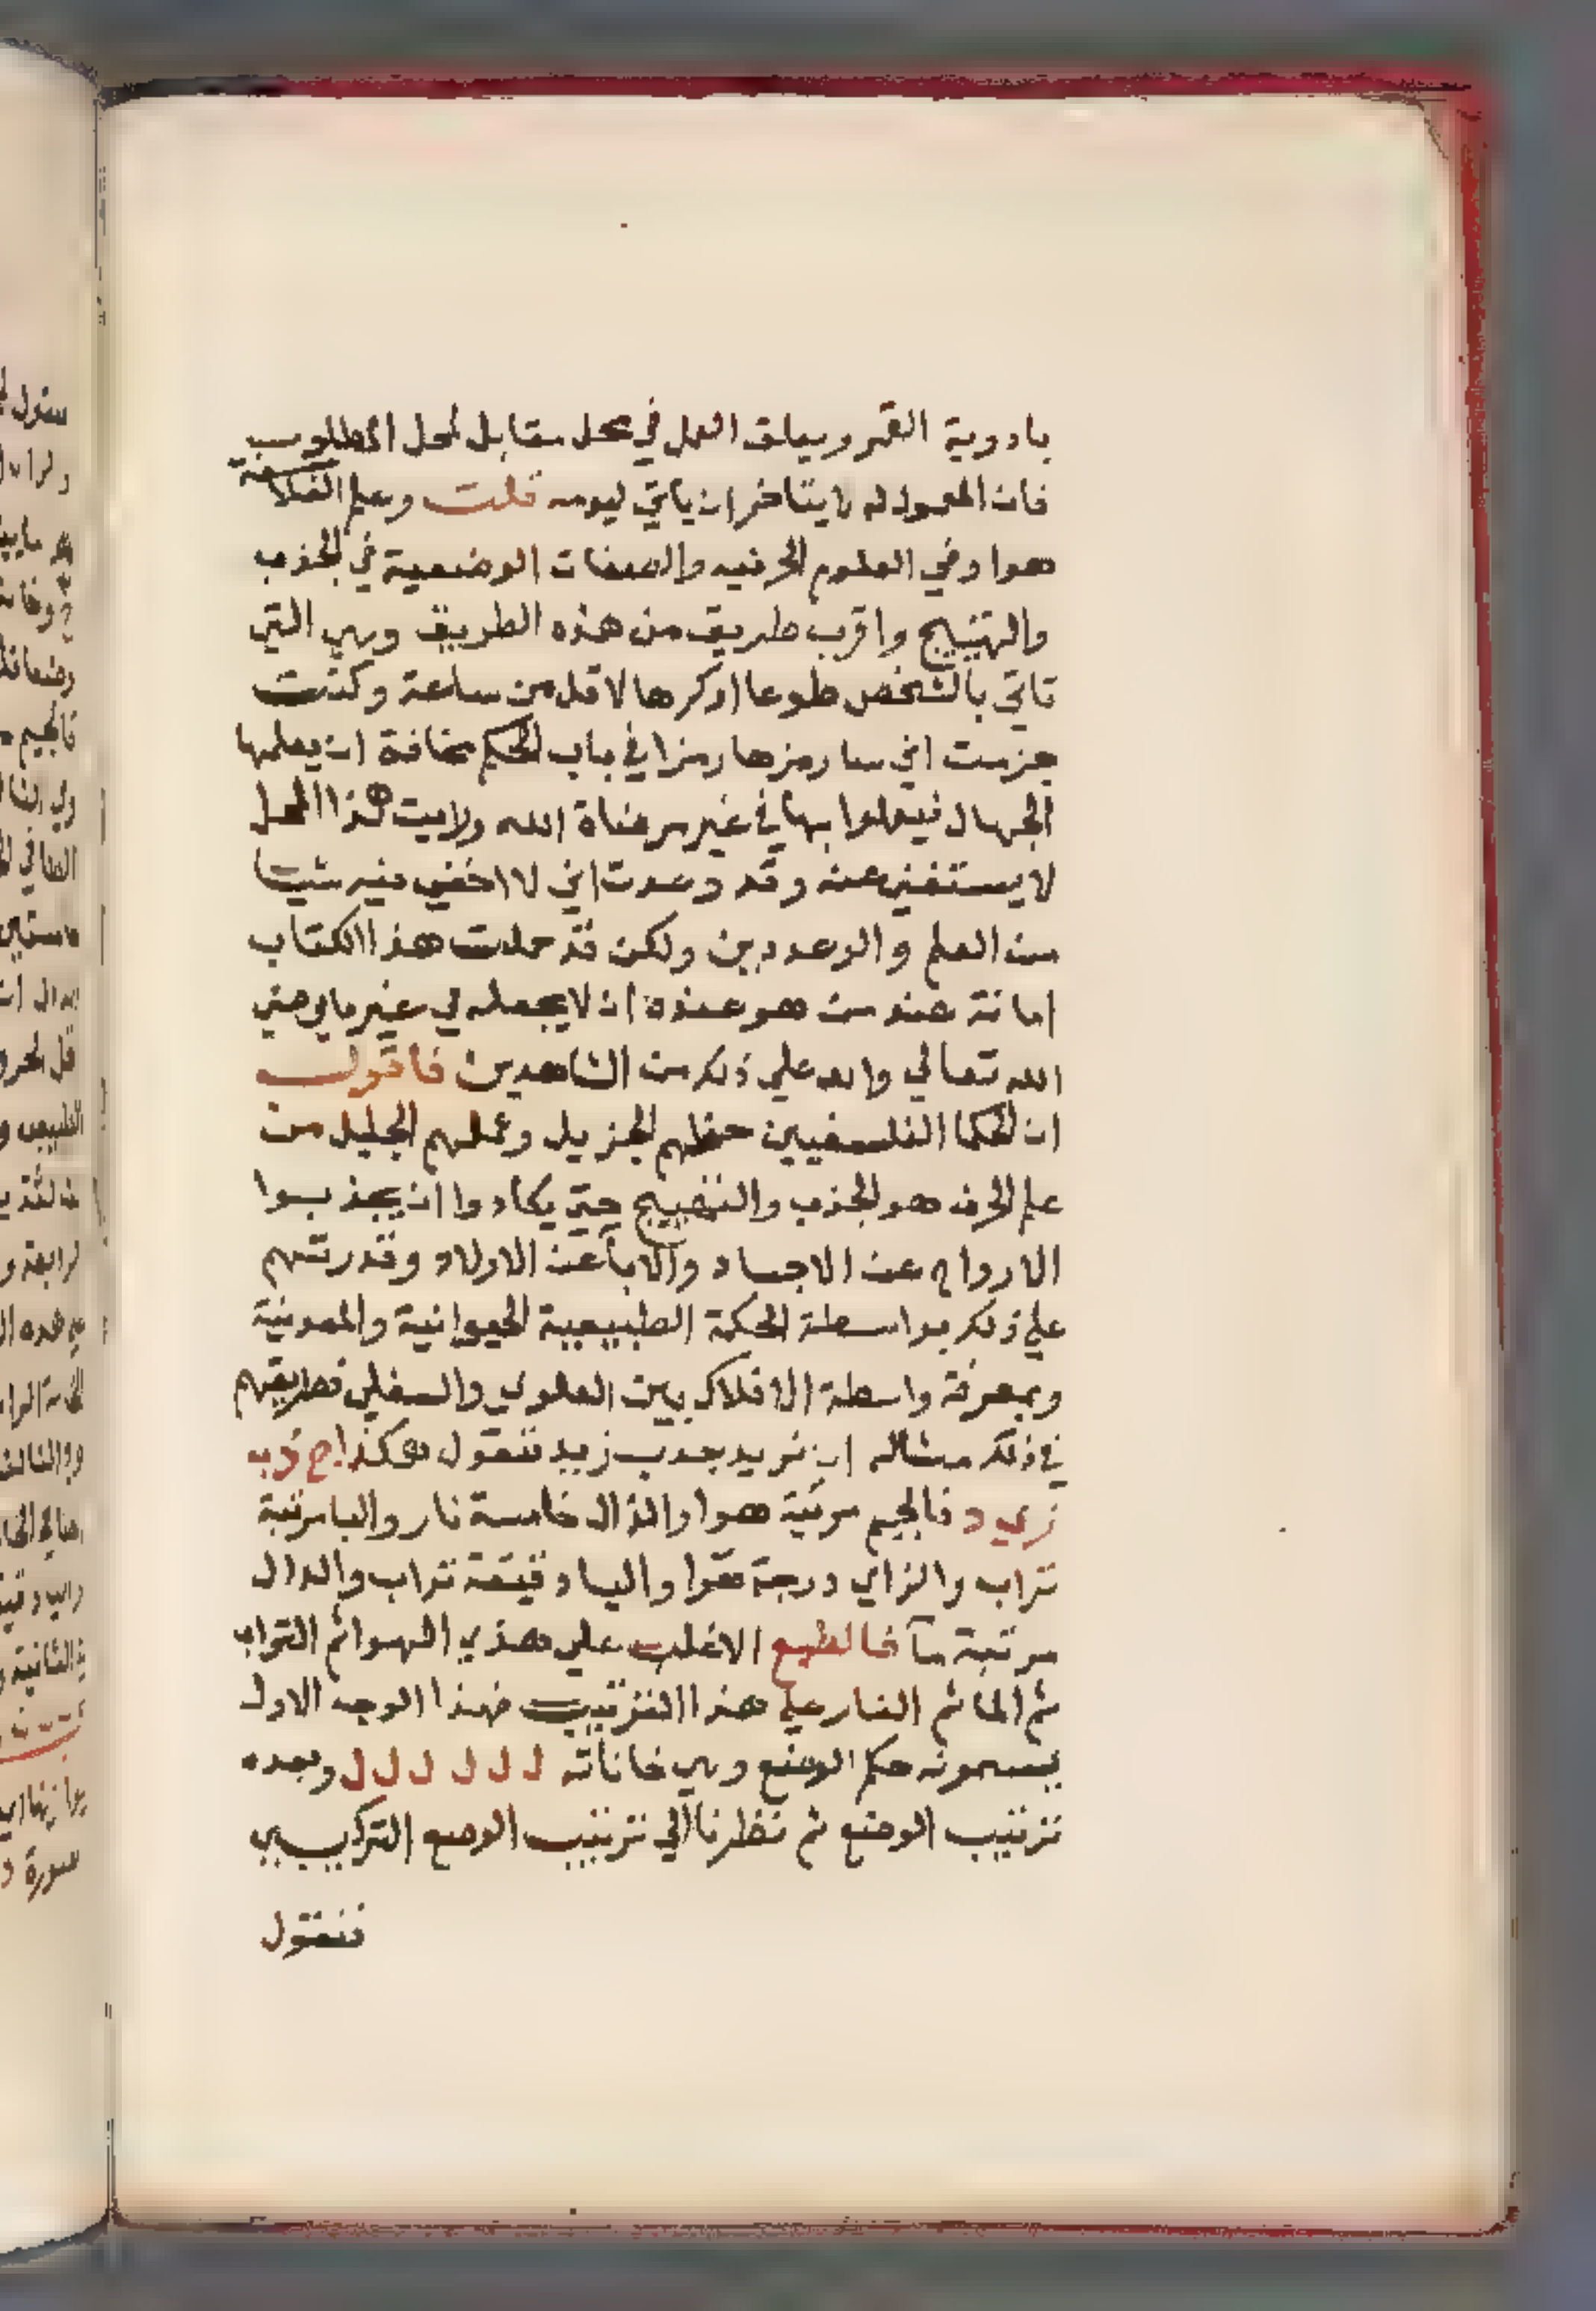 بادوية القمر ويعلق العمل في محل مقابل لمحل المطلوب
فان المعمول له لا يتاخر ان ياتي ليومه قلت وعلم الفلاسفة
هوا وفي العلوم الحرفيه والصفات الوضعية في الجذب
والتهييج واقرب طريق من هذه الطريق وهي التي
تاتي بالشخص طوعا اوكرها لاقل من ساعة وكنت
جزمت اني سارمزها رمزا في باب الحكم مخافة ان يعلمها
الجهال فيعملوا بها في غير مرضاة الله ولاميت هذا المحل
لا يستغني عنه وقد وعدت اني لا اخفي فيه شيئا
من العلم والوعد دين ولكن قد جعلت هذا الكتاب
امانة عند من هو عنده ان لا يجعله في غير ما يرضي
الله تعالي والله علي ذلك من الشاهدين فاقول
ان الحكما الفلسفيين حظهم الجزيل وعملهم الجليل من
علم الحرف هو الجذب والتهييج حتي يكادوا ان يجذبوا
الارواح عن الاجساد والابا عن الاولاد وقدرتهم
علي ذلك بواسطة الحكمة الطبيعية الحيوانية والمعدنية
وبمعرفة واسطة الافلاك بين العلوي والسفلي فطريقهم
في ذلك مثاله ان تريد جذب زيد فتقول هكذا ج ذ ب
ز ي د فالجيم مرتبة هوا والذال خامسة نار والبا مرتبة
تراب والزاي درجة هوا واليا دقيقة تراب والدال
مرتبة مآ فالطبع الاغلب علي هذي الهوا ثم التراب
ثم الما ثم النار علي هذا الترتيب فهذا الوجه الاول
يسمونه حكم الوضع وهي خاناته ل ل ل ل ل ل وبعده
ترتيب الوضع ثم نظرنا الي ترتيب الوضع التركيبي
فنقول